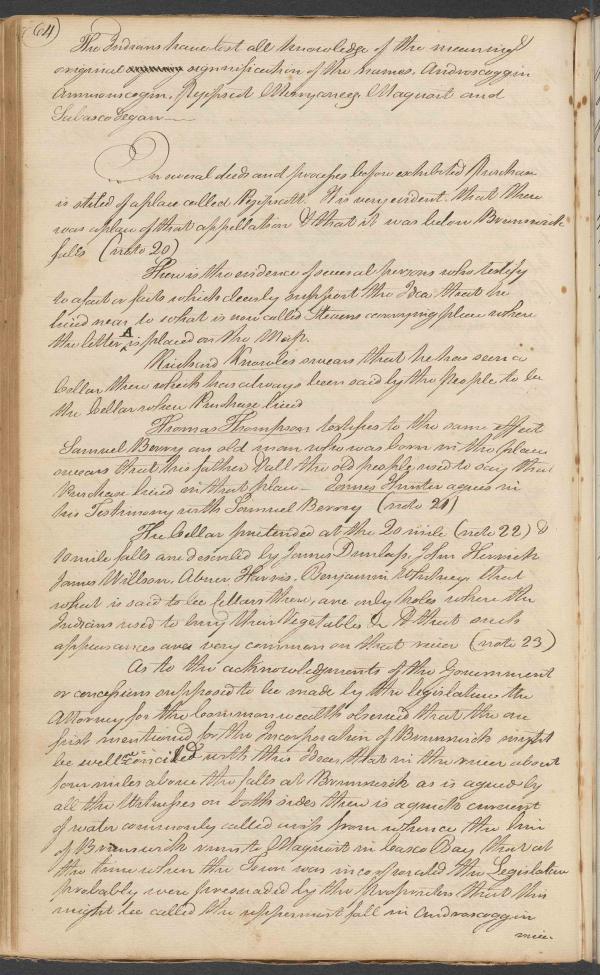 (64)
The Indians have lost all knowledge of the meaning &
original signification of the names. Androscoggin
Ammoscogin, Pejipscot Merryconeeg, Maquoit and
Sabascodegan
In several deeds and processes before exhibited Purchase
is stiled of a place called Pejipscott. It is very evident that there
was a place of that appellation & that it was below Brunswick
falls (note 20)
There is the evidence of several persons who testify
to a fact or facts which clearly support the Idea that he
lived near to what is now called Stevens carrying place where
the letter A is placed on the Map.
Richard Knowles swears that he has seen a
Cellar there which has always been said by the People to be
the Cellar where Purchase lived
Thomas Thompson testifies to the same effect
Samuel Berry an old man who was born in the place
swears that his father & all the old people used to say that
Purchase lived in that place — James Hunter agrees in
his Testimony with Samuel Berry (note 21)
The Cellar pretended at the 20 mile (note 22) &
10 mile falls are described by James Dunlap, John Herrick
James Willson, Abner Harris, Benjamin Whitney, that
what is said to be Cellars there, are only holes where the
Indians used to bury their Vegetables &c & that such
appearances are very common on that river (note 23)
As to the acknowledgments of the Government
or concessions supposed to be made by the legislature the
Attorney for the Commonwealth observed that the one
first mentioned for the Incorporation of Brunswick might
be well reconciled with this Idea, that in the river about
four miles above the falls at Brunswick as is agreed by
all the Witnesses on both sides there is a quick current
of water commonly called from whence the line
of Brunswick runs to Maquoit in Casco Bay that at
the time when the Town was incorporated the Legislature
probably were persuaded by the Proprietors that this
might be called the uppermost fall in Androscoggin
river